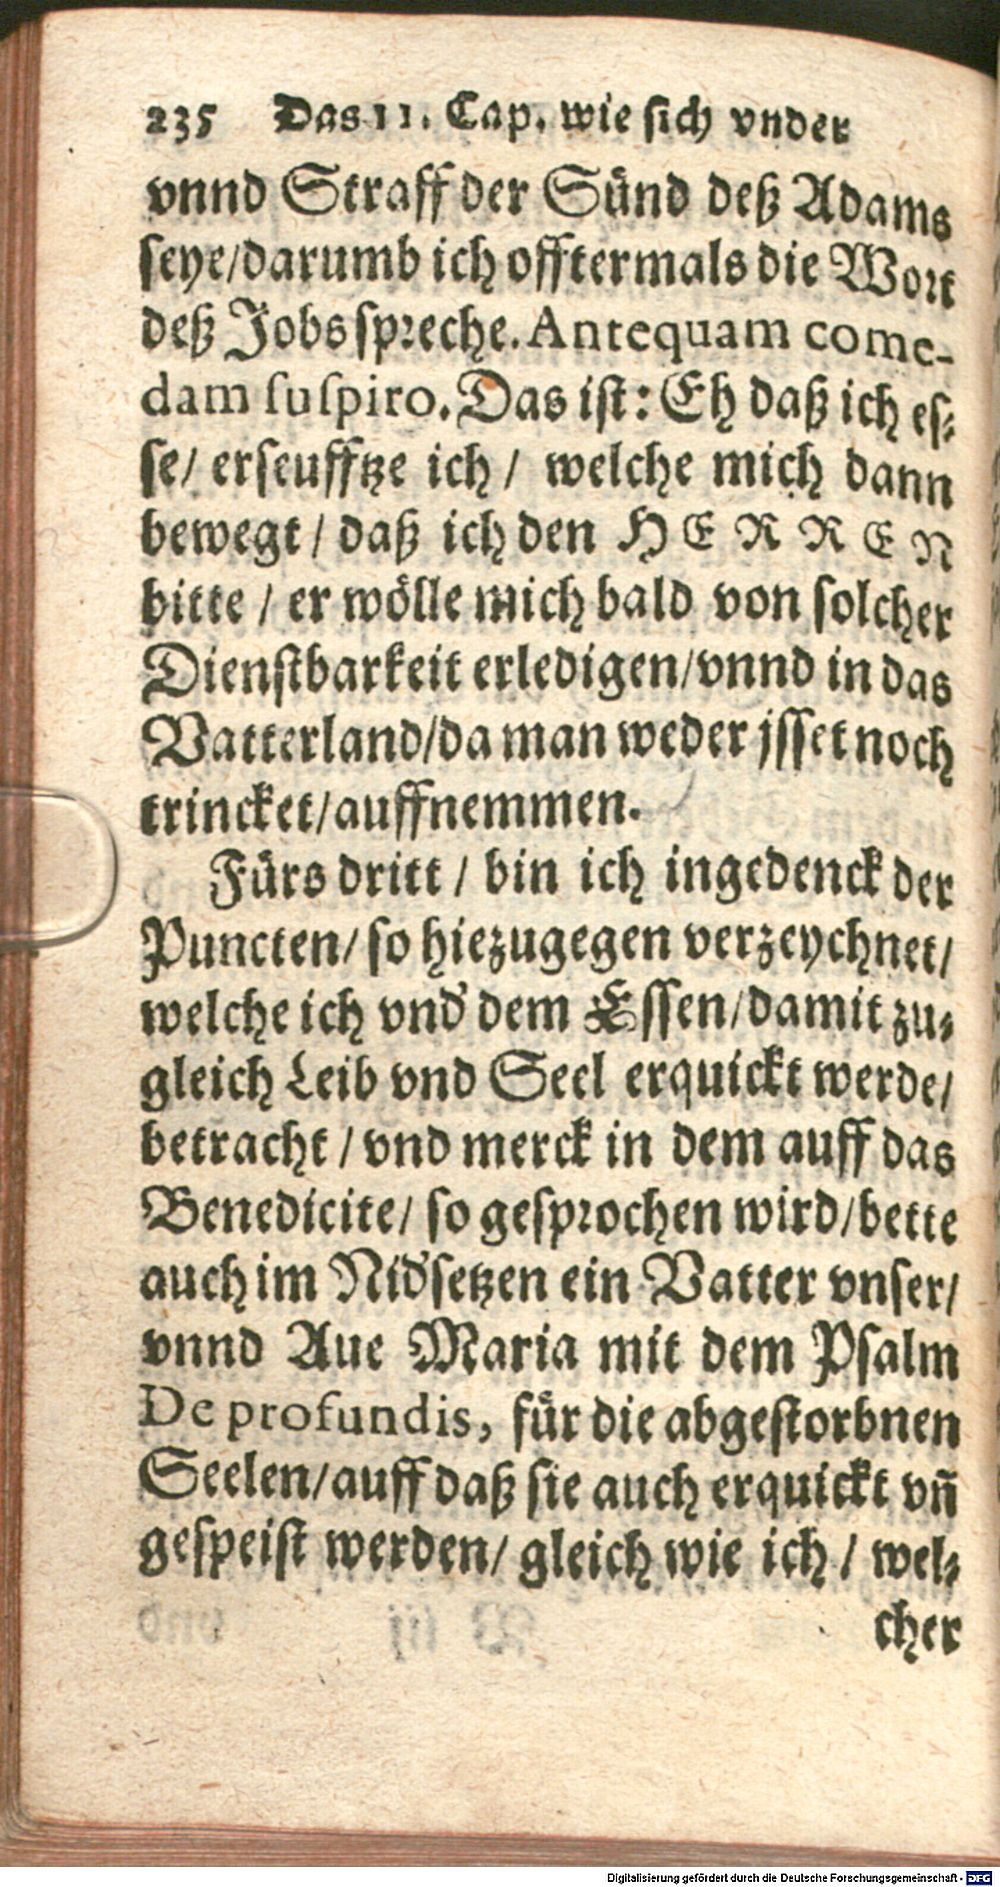 235 Das 11. Cap. wie sich vnder
vnnd Straff der Sünd deß Adams
seye/darumb ich offtermals die Wort
deß Jobs spreche. Antequam come-
dam suspiro. Das ist: Eh daß ich es-
se/ erseufftze ich / welche mich dann
bewegt / daß ich den HERREN
bitte / er wölle mich bald von solcher
Dienstbarkeit erledigen/vnnd in das
Vatterland/da man weder jsset noch
trincket/auffnemmen.
Fürs dritt / bin ich ingedenck der
Puncten/ so hiezugegen verzeychnet/
welche ich vnd' dem Essen/damit zu-
gleich Leib vnd Seel erquickt werde/
betracht / vnd merck in dem auff das
Benedicite/ so gesprochen wird/bette
auch im Nid'setzen ein Vatter vnser/
vnnd Aue Maria mit dem Psalm
De profundis, für die abgestorbnen
Seelen/auff daß sie auch erquickt vn̄
gespeist werden/ gleich wie ich / wel-
cher
Digitalisierung gefördert durch die Deutsche Forschungsgemeinschaft - DFG